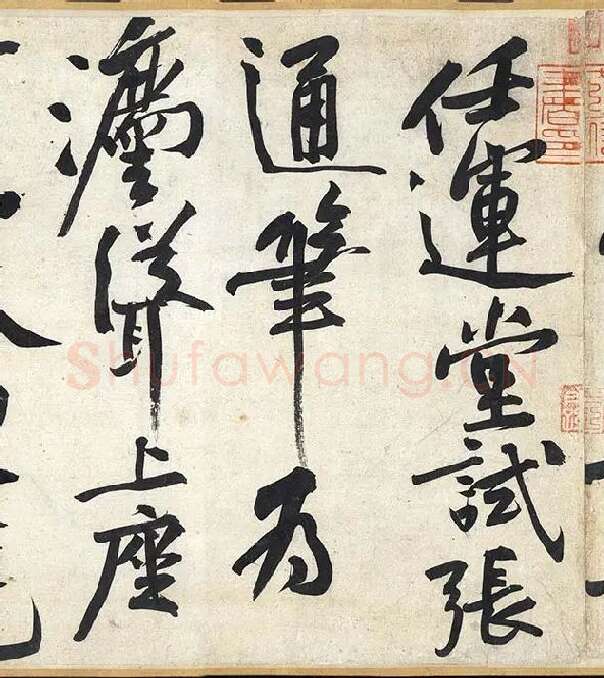 任運堂試張
通筆為
灋聳上座
Shufawang.CN